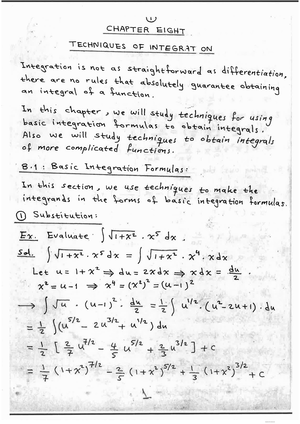 (1)
CHAPTER EIGHT
TECHNIQUES OF INTEGRATION
Integration is not as straightforward as differentiation,
there are no rules that absolutely guarantee obtaining
an integral of a function.
In this chapter, we will study techniques for using
basic integration formulas to obtain integrals.
Also we will study techniques to obtain integrals
of more complicated functions.
8.1: Basic Integration Formulas:
In this section, we use techniques to make the
integrands in the forms of basic integration formulas.
① Substitution:
Ex. Evaluate ∫ √(1+x²) · x⁵ dx.
Sol. ∫ √(1+x²) · x⁵ dx = ∫ √(1+x²) · x⁴ · x dx
Let u = 1+x² ⇒ du = 2x dx ⇒ x dx = du/2
x² = u-1 ⇒ x⁴ = (x²)² = (u-1)²
→ ∫ √u · (u-1)² · du/2 = 1/2 ∫ u^(1/2) · (u²-2u+1) · du
= 1/2 ∫ (u^(5/2) - 2u^(3/2) + u^(1/2)) du
= 1/2 [ 2/7 u^(7/2) - 4/5 u^(5/2) + 2/3 u^(3/2) ] + c
= 1/7 (1+x²)^(7/2) - 2/5 (1+x²)^(5/2) + 1/3 (1+x²)^(3/2) + c
1